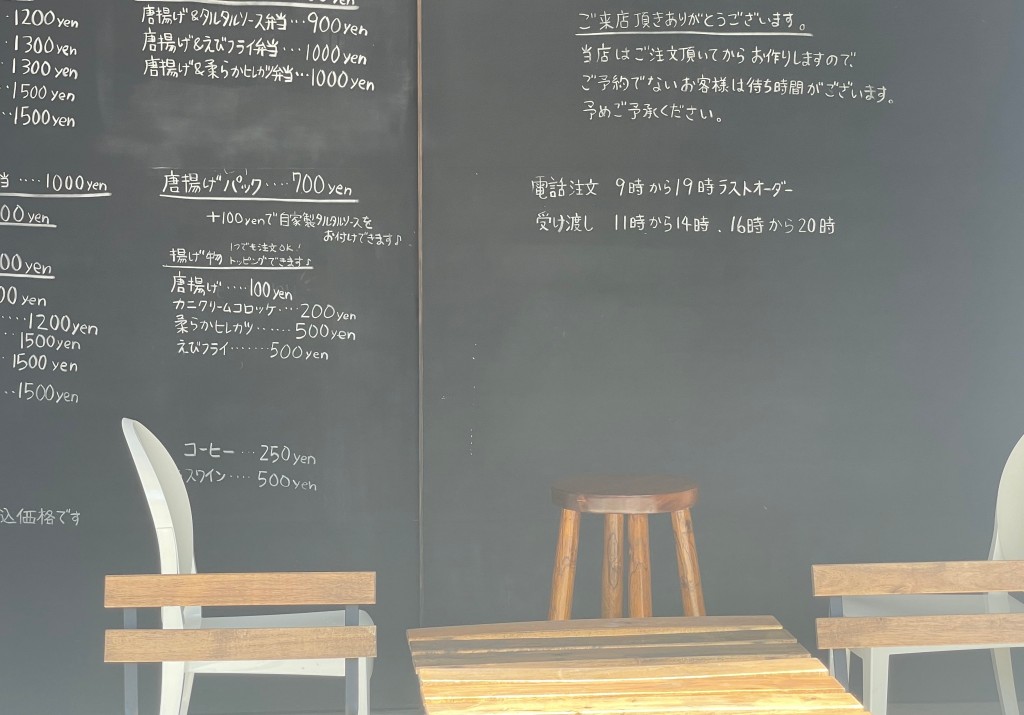 1200yen
1300yen
1300yen
1500yen
1500yen
当 ····1000yen
00yen
00yen
00yen
····1200yen
1500yen
1500yen
··1500yen
込価格です
唐揚げ&タルタルソース弁当···900yen
唐揚げ&えびフライ弁当···1000yen
唐揚げ&柔らかヒレカツ弁当···1000yen
唐揚げパック····700yen
+100yenで自家製タルタルソースを
お付けできます♪
揚げ物 1つでも注文OK!
トッピングできます♪
唐揚げ····100yen
カニクリームコロッケ····200yen
柔らかヒレカツ······500yen
えびフライ·······500yen
コーヒー···250yen
スワイン····500yen
ご来店頂きありがとうございます。
当店はご注文頂いてからお作りしますので、
ご予約でないお客様は待ち時間がございます。
予めご予承ください。
電話注文 9時から19時ラストオーダー
受け渡し 11時から14時．16時から20時